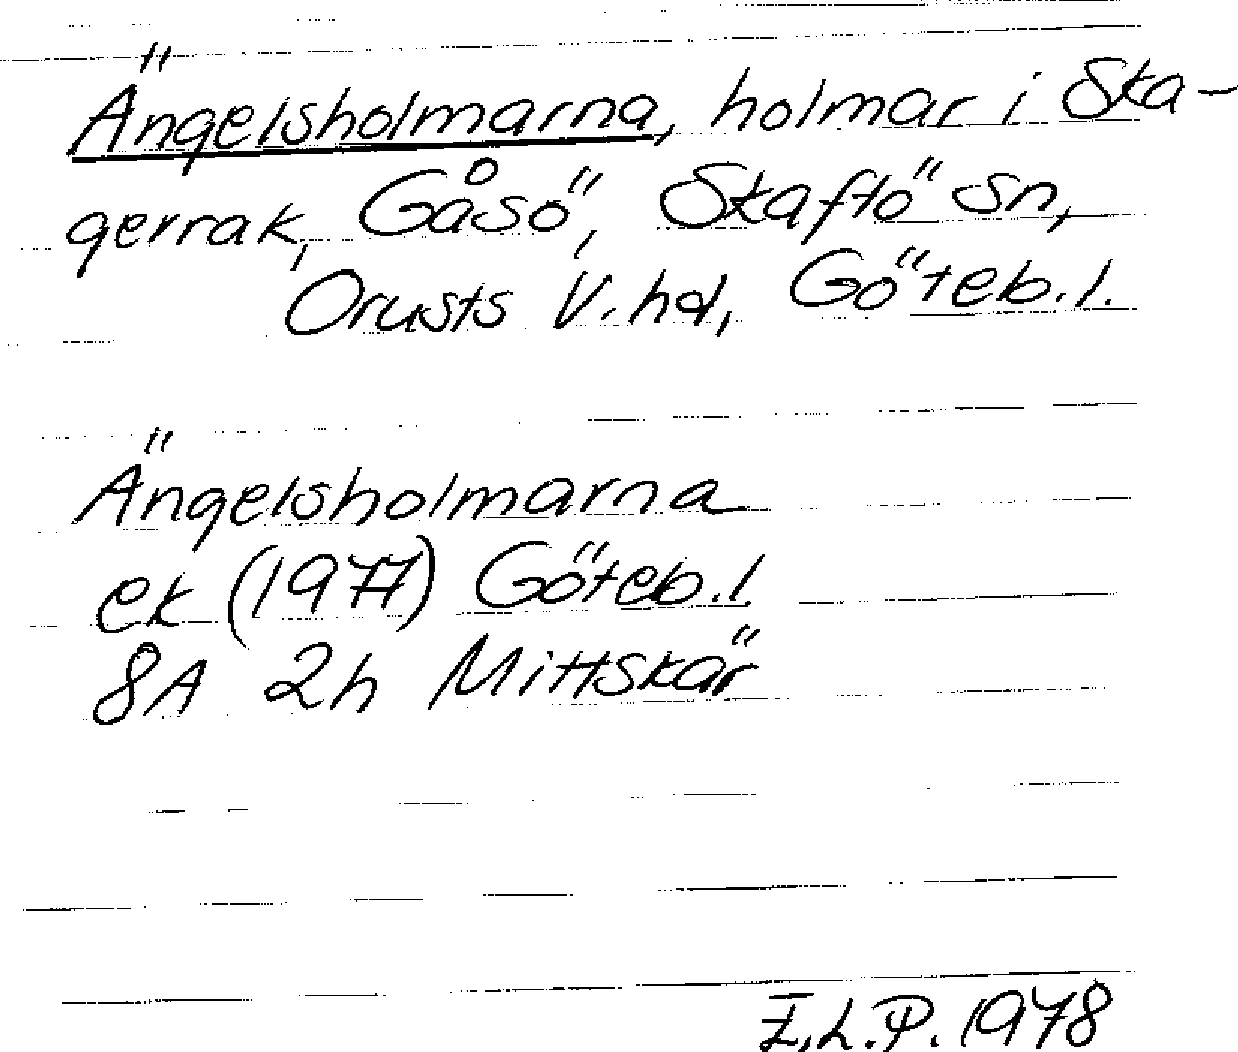 Ängelsholmarna, holmar i Ska-
gerrak, Gåsö, Skaftö sn,
Orusts V. hd, Göteb. l.
Ängelsholmarna
ek (1977) Göteb. l.
8A 2h Mittskär
I.L.P. 1978